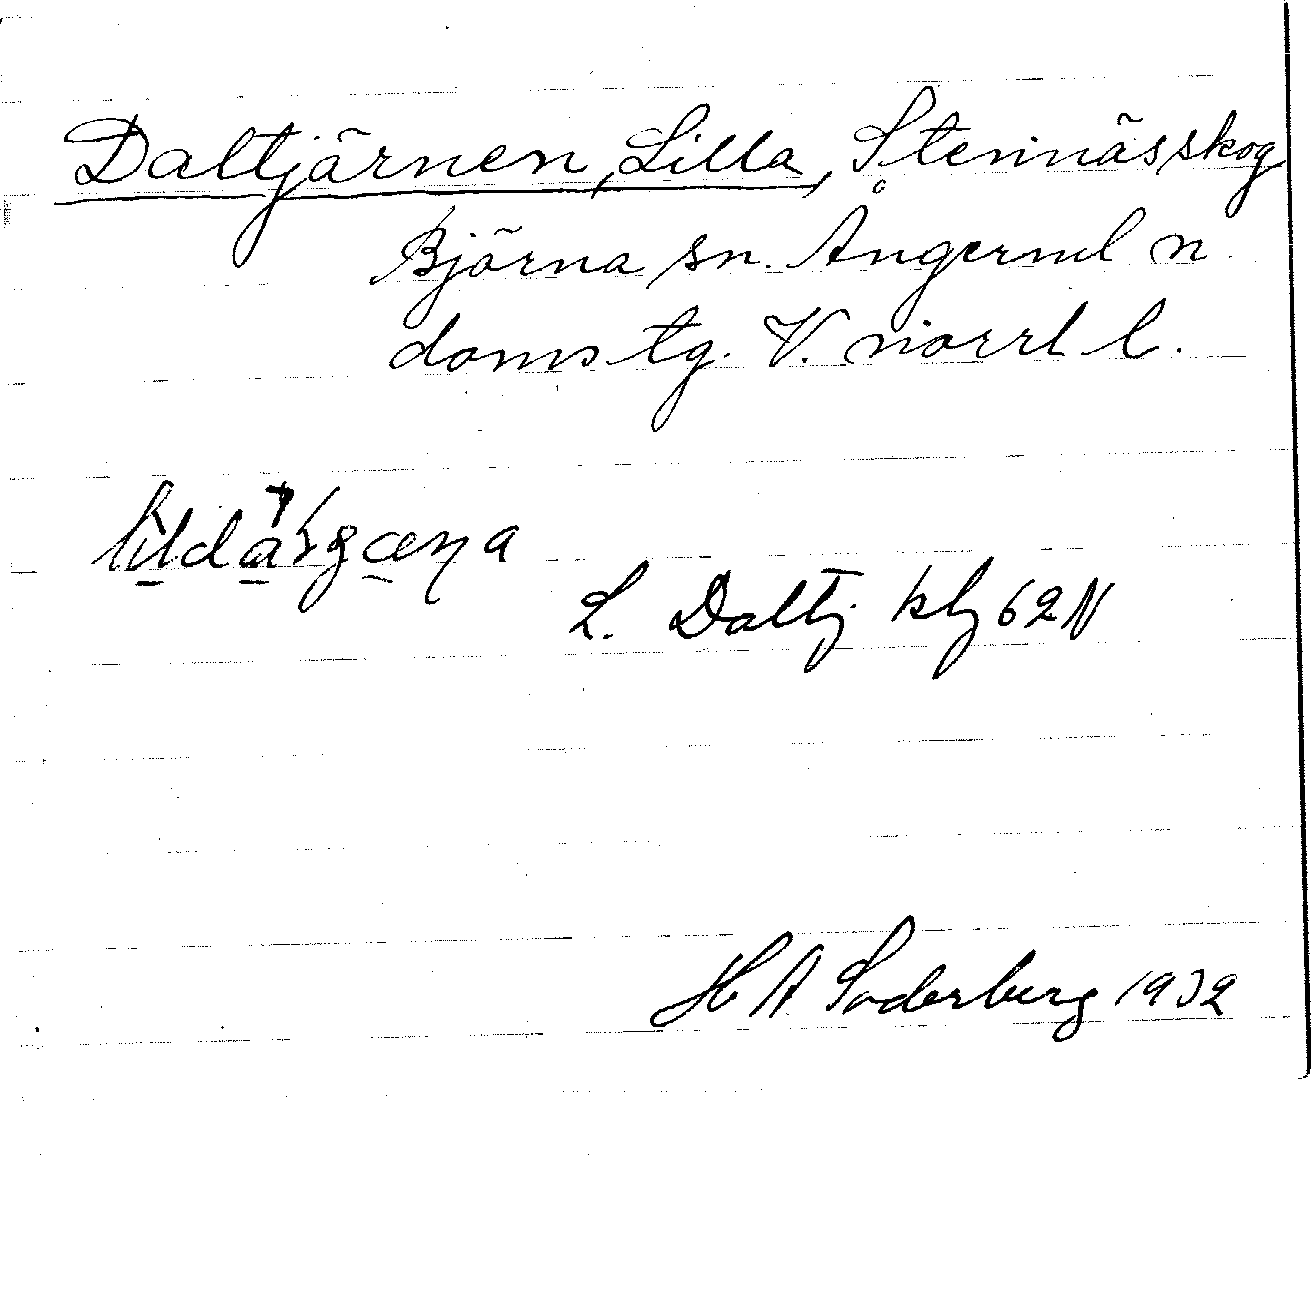 Daltjärnen, Lilla, Stennässkog
Björna sn. Ångerml n
doms tg. V. norrl l.
L. Daltj. kbl 62 N
H A Söderberg 1932